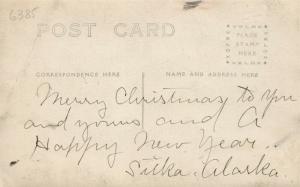 6385
POST CARD
PLACE
STAMP
HERE
CORRESPONDENCE HERE
NAME AND ADDRESS HERE
Merry Christmas to You
and yours and A
Happy New Year..
Sitka. Alaska.